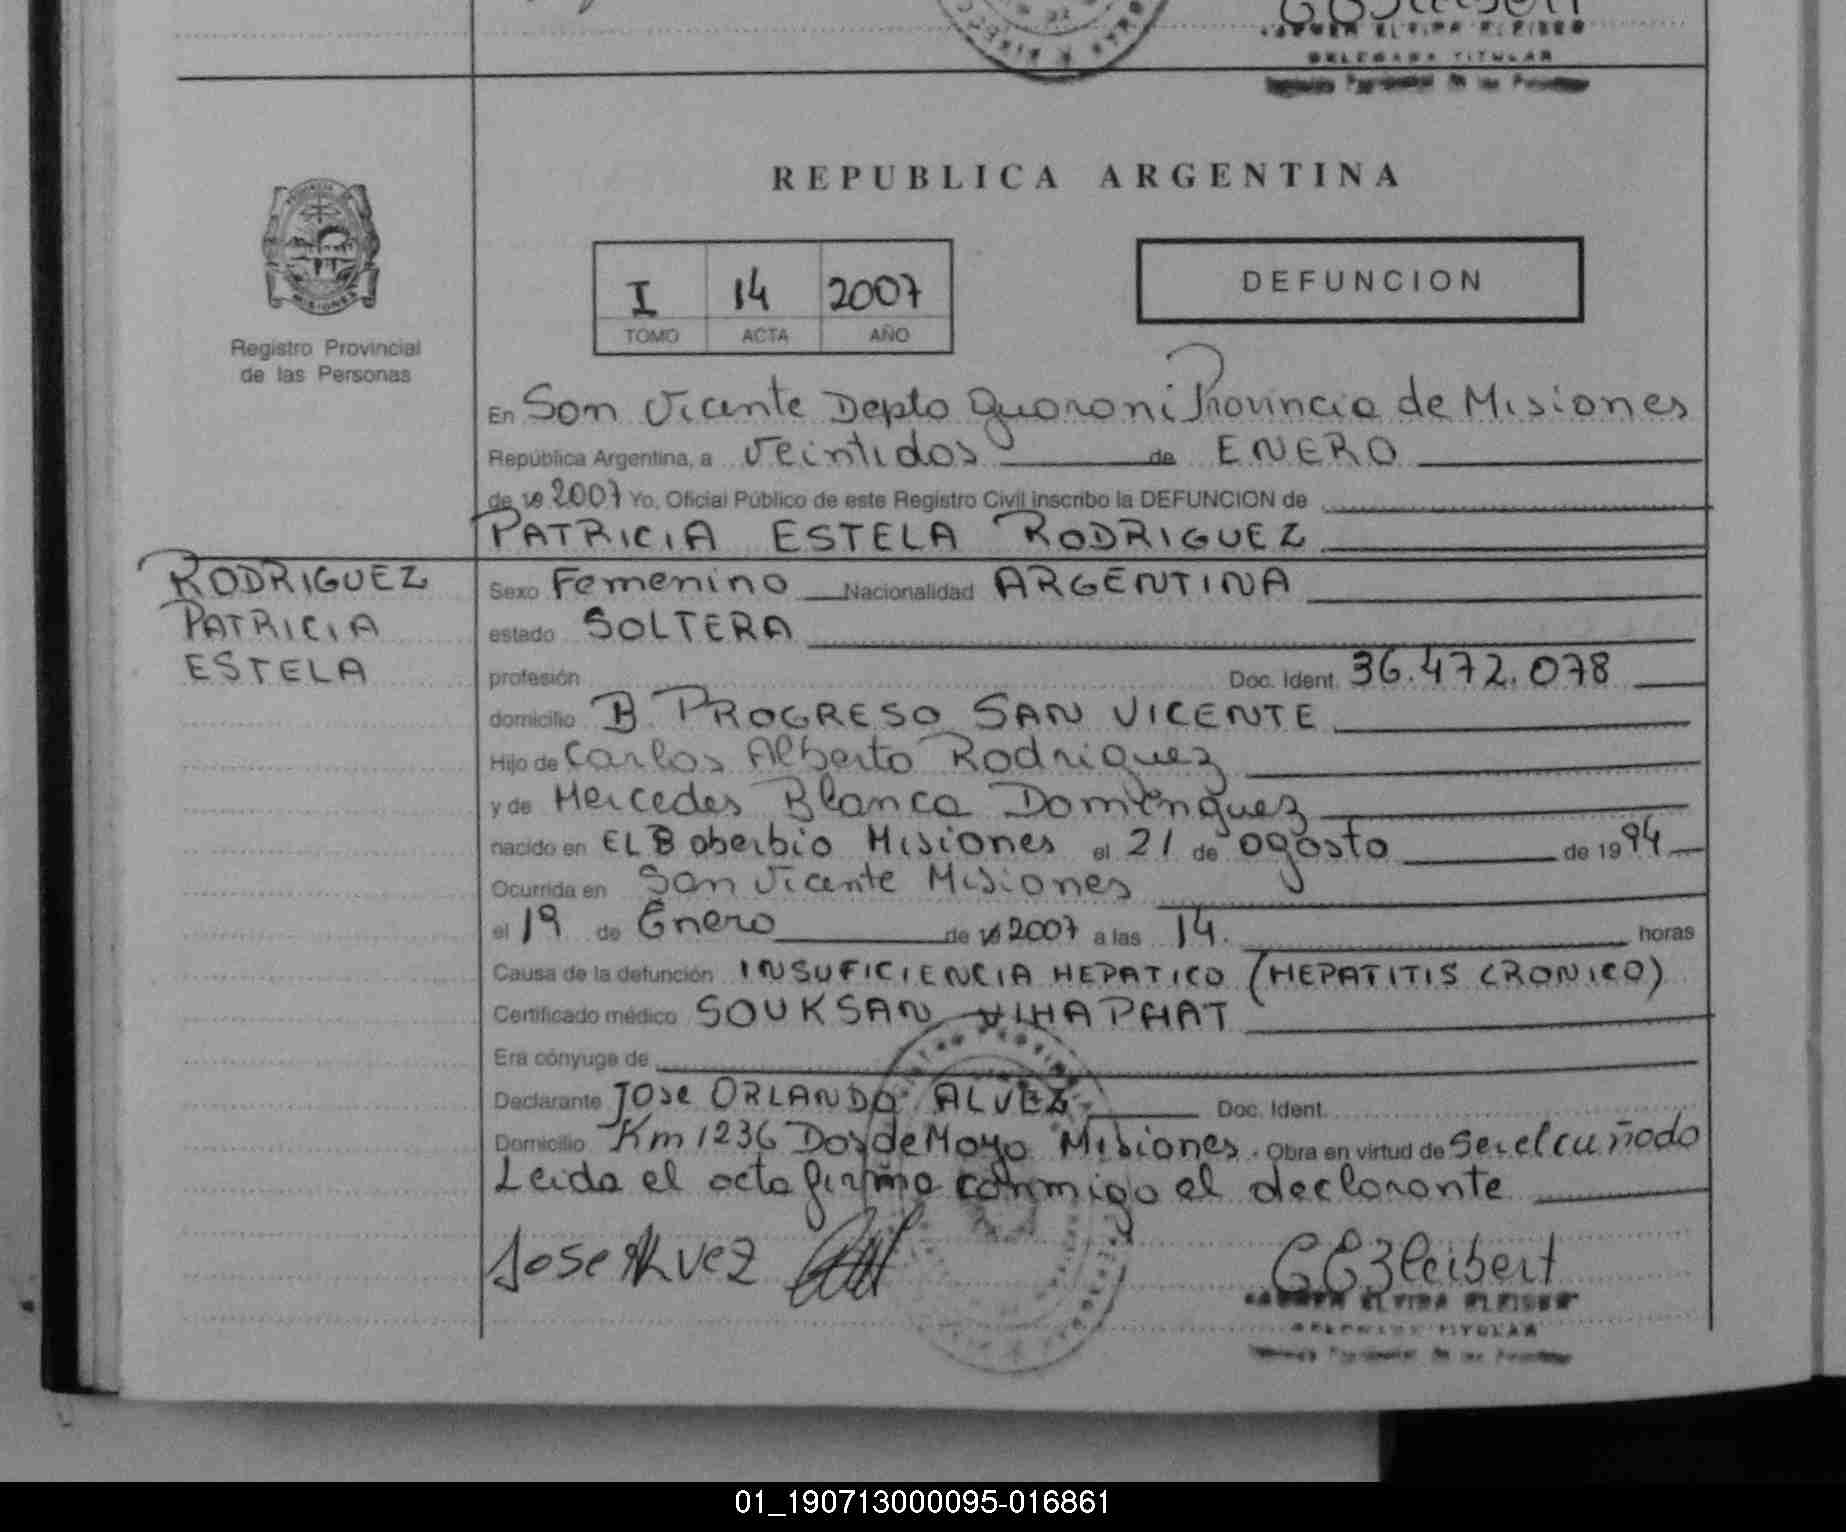 DELEGADA TITULAR
REPUBLICA ARGENTINA
MISIONES
Registro Provincial
de las Personas
I 14 2007
TOMO ACTA AÑO
DEFUNCION
En San Vicente Depto Guarani Provincia de Misiones
República Argentina, a veintidos de ENERO
de 19 2007 Yo, Oficial Público de este Registro Civil inscribo la DEFUNCION de
PATRICIA ESTELA RODRIGUEZ
RODRIGUEZ
PATRICIA
ESTELA
Sexo Femenino Nacionalidad ARGENTINA
estado SOLTERA
profesión Doc. Ident. 36.472.078
domicilio B. PROGRESO SAN VICENTE
Hijo de Carlos Alberto Rodriguez
y de Mercedes Blanca Domenguez
nacido en EL Boberbio Misiones el 21 de agosto de 1994
Ocurrida en San Vicente Misiones
el 19 de Enero de 19 2007 a las 14. horas
Causa de la defunción INSUFICIENCIA HEPATICO (HEPATITIS CRONICO)
Certificado médico SOUKSAN VIHAPHAT
Era cónyuge de
Declarante Jose ORLANDO ALVEZ Doc. Ident.
Domicilio Km 1236 Dos de Mayo Misiones. Obra en virtud de Ser el cuñado
Leida el acta firma conmigo el declarante
Jose Alvez
DELEGADA TITULAR
01_190713000095-016861